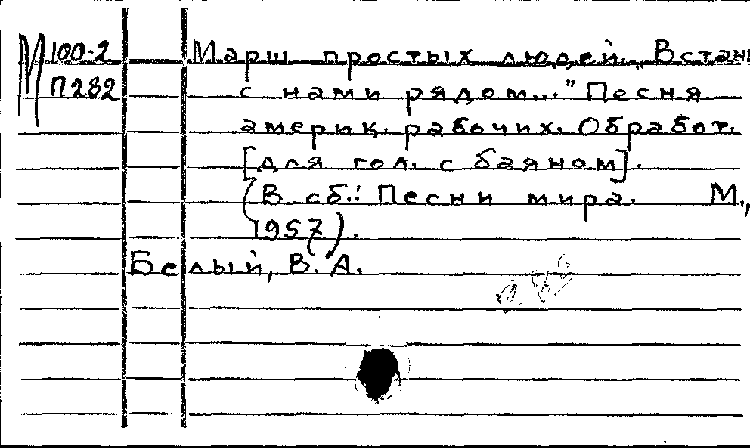 М 100-2 Марш простых людей. „Встань
П282 с нами рядом..." Песня
америк. рабочих. Обработ.
[для гол. с баяном].
(В сб.: Песни мира. М.,
1957).
Белый, В. А.